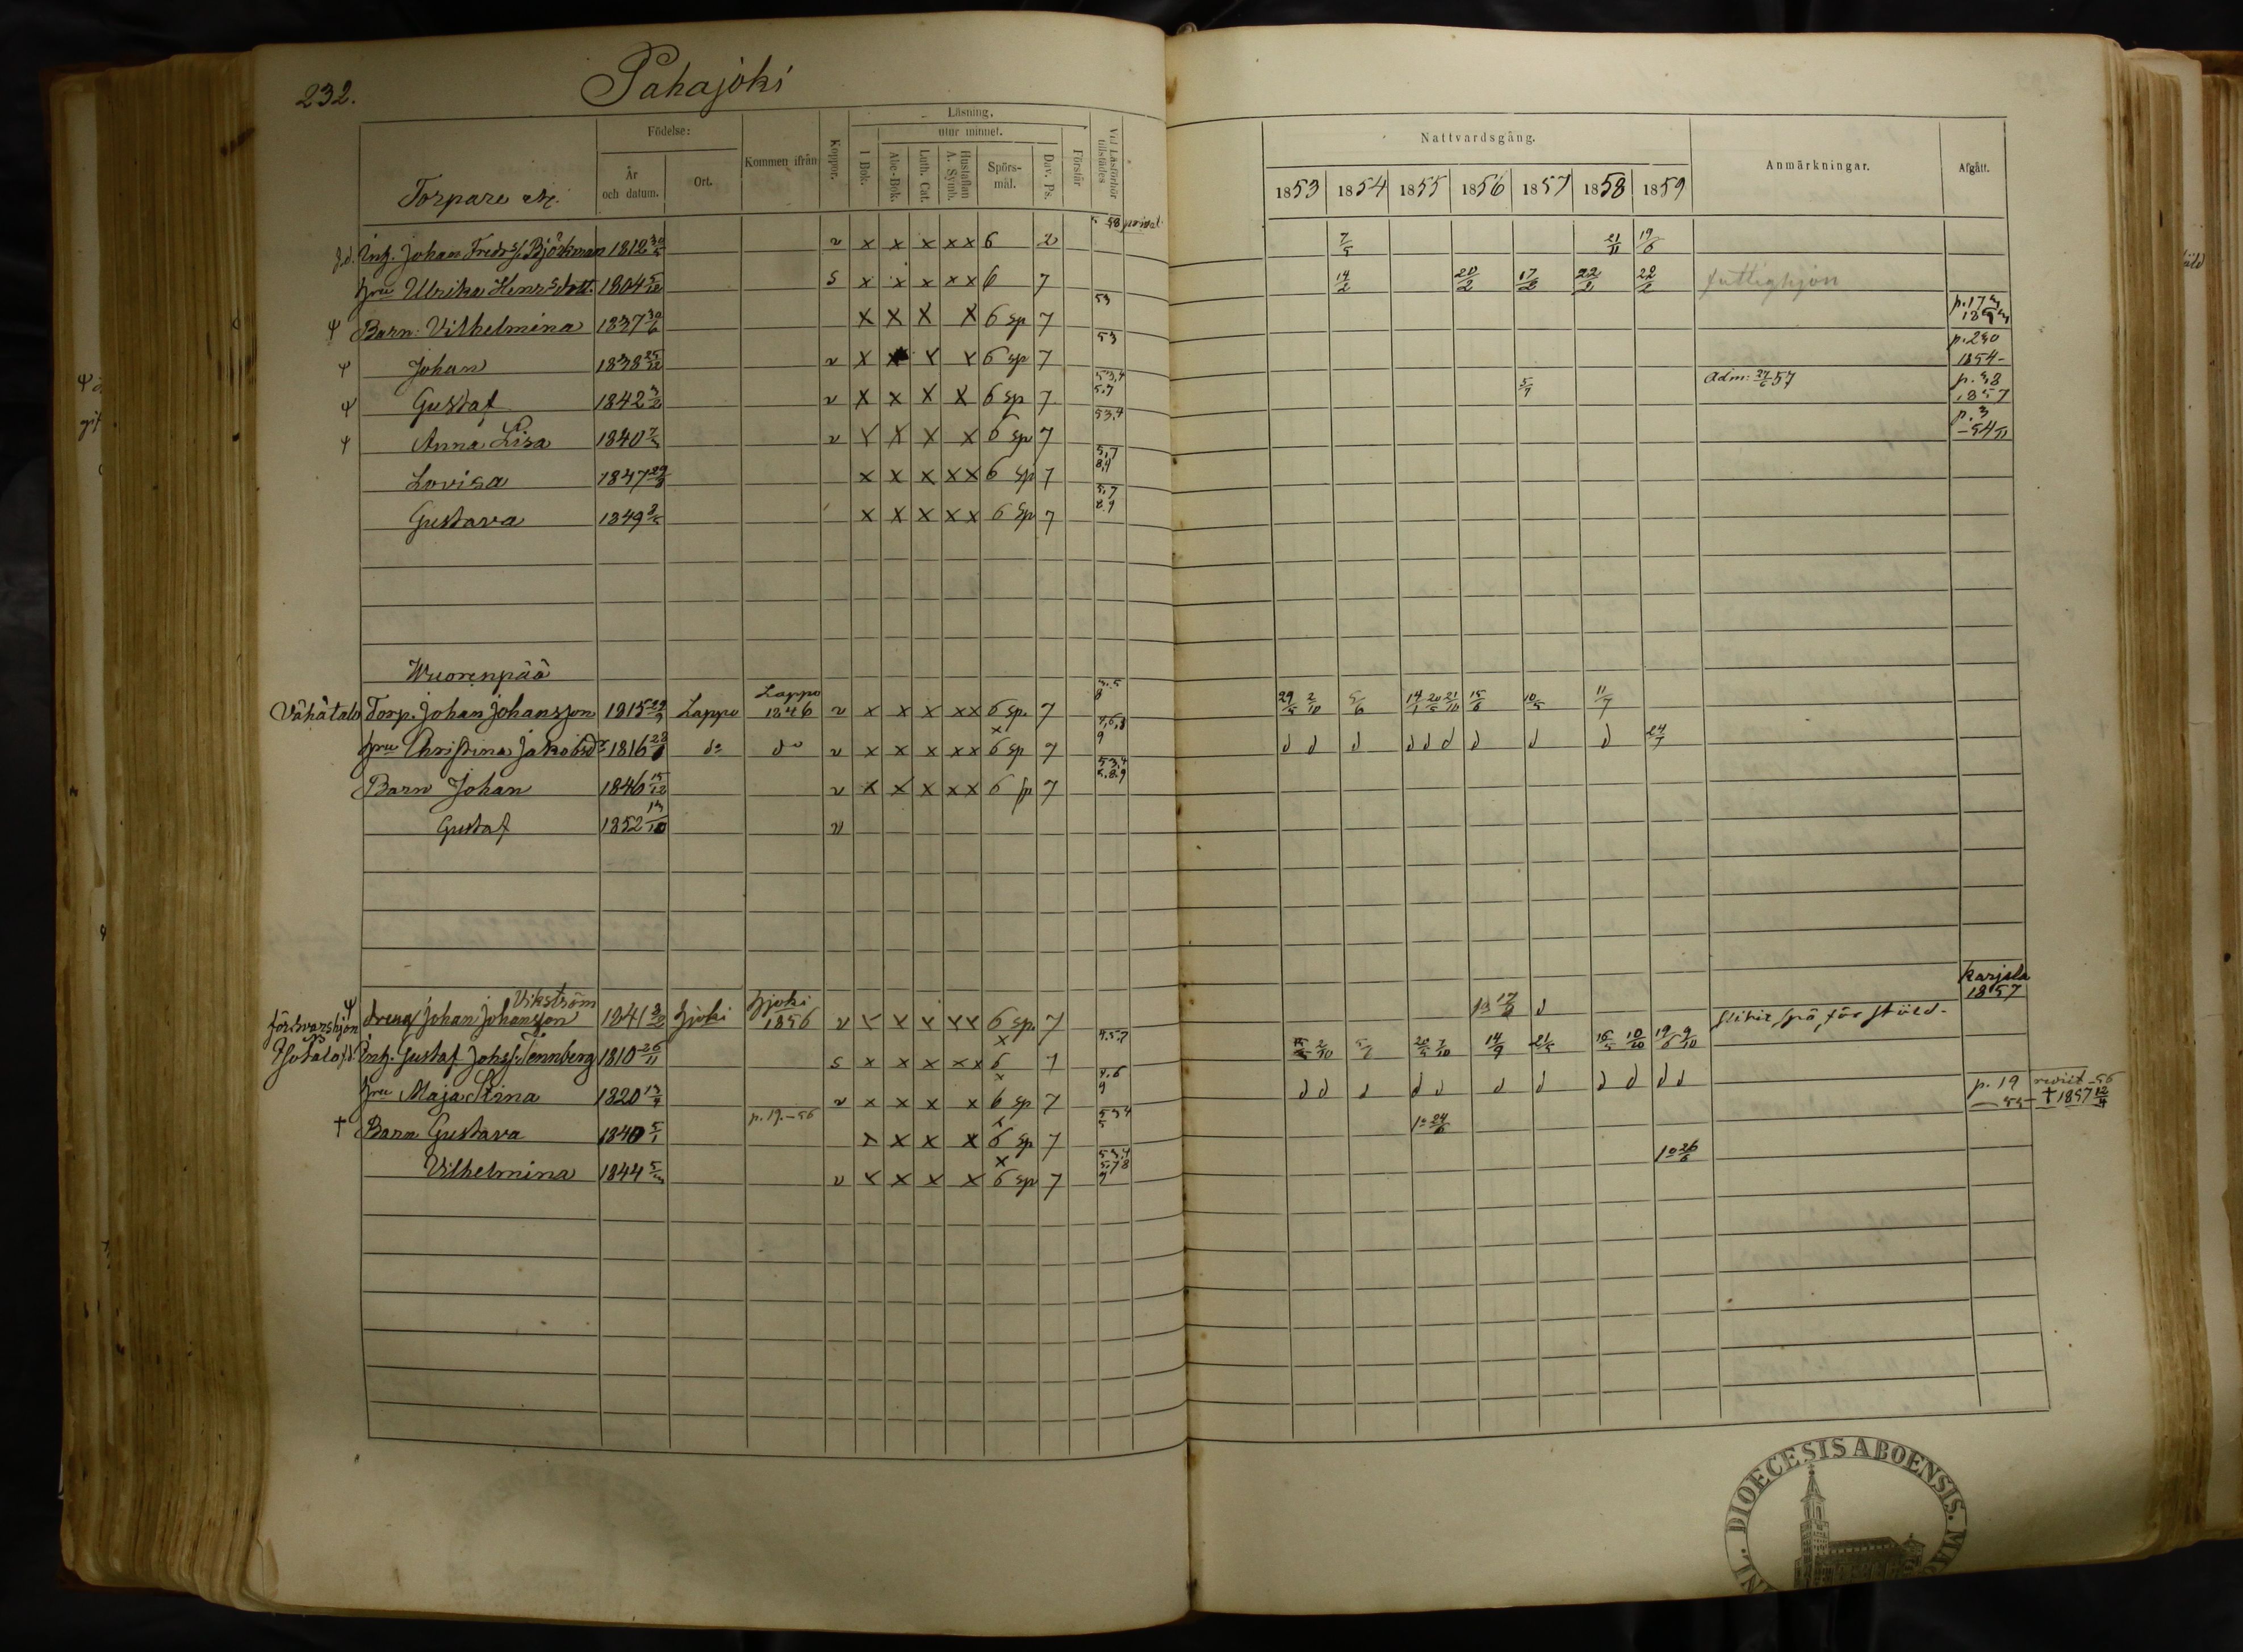 232.
Pahajoki
Torpare etc.
Födelse:
År och datum.
Ort.
Kommen ifrån
Koppor.
Läsning.
utur minnet.
I Bok.
Abc-Bok.
Luth. Cat.
Hustaflan A. Symb.
Spörs-mål.
Dav. Ps.
Förstår
Vid Läsförhör tillstädes
Nattvardsgång.
1853 1854 1855 1856 1857 1858 1859
Anmärkningar.
Afgått.
Inh. Johan Fredrs. Björkman 1812 30/5 v x x x x x 6 2 58 7/5 21/11 19/6
hru Ulrika Henrsdott. 1804 5/12 s x x x x x 6 7 14/2 20/2 17/2 22/2 22/2 fattighjon
Ψ Barn: Vilhelmina 1837 30/6 x x x x 6 sp 7 53 p. 173
Ψ Johan 1838 25/12 v x x x x 6 sp 7 53 p. 230 1854
Ψ Gustaf 1842 3/2 v x x x x 6 sp 7 53,4 5,7 5/7 Adm: 27/6 57 p. 38 1857
Ψ Anna Lisa 1840 7/3 v x x x x 6 sp 7 53,4 p. 3 -54
Lovisa 1847 29/3 x x x x x 6 sp 7 5,7 8,9
Gustava 1849 8/5 x x x x x 6 sp 7 5,7 8,9
Wuorenpää
Vähätalo Torp. Johan Johansson 1815 29/3 Lappo Lappo 1846 v x x x x x 6 sp. 7 29/5 2/10 5/6 14/1 20/5 21/10 15/6 10/5 11/7
hru Christina Jakobsd. 1816 28/8 do do v x x x x x 6 sp 7 4,6,8 9 d d d d d d d d d 24/7
Barn Johan 1846 15/12 v x x x x x 6 sp 7 53,4 5,8,9
Gustaf 1852 13/10 v
Vikström
Ψ försvarshjon dreng Johan Johansson 1841 3/2 hjoki hjoki 1856 v x x x x x 6 sp. 7 d slitit spö för stöld. Karjala 1857
Isotalo Inh. Gustaf Johss. Tennberg 1810 26/11 s x x x x x 6 7 4.5.7 2/10 5/7 20/5 7/10 14/9 21/5 16/5 10/10 19/6 9/10
hru Maja Stina 1820 13/4 v x x x x 6 sp 7 4,6 9 d d d d d d d d d d d
† Barn Gustava 1840 5/1 p. 19.-56 x x x x 6 sp 7 53 4 5 1o 24/6 p. 19 -55 † 1857 12/4
Vilhelmina 1844 5/3 v x x x x 6 sp 7 53,4 5,7 8 9 1o 26/6
DIOECESIS ABOENSIS.